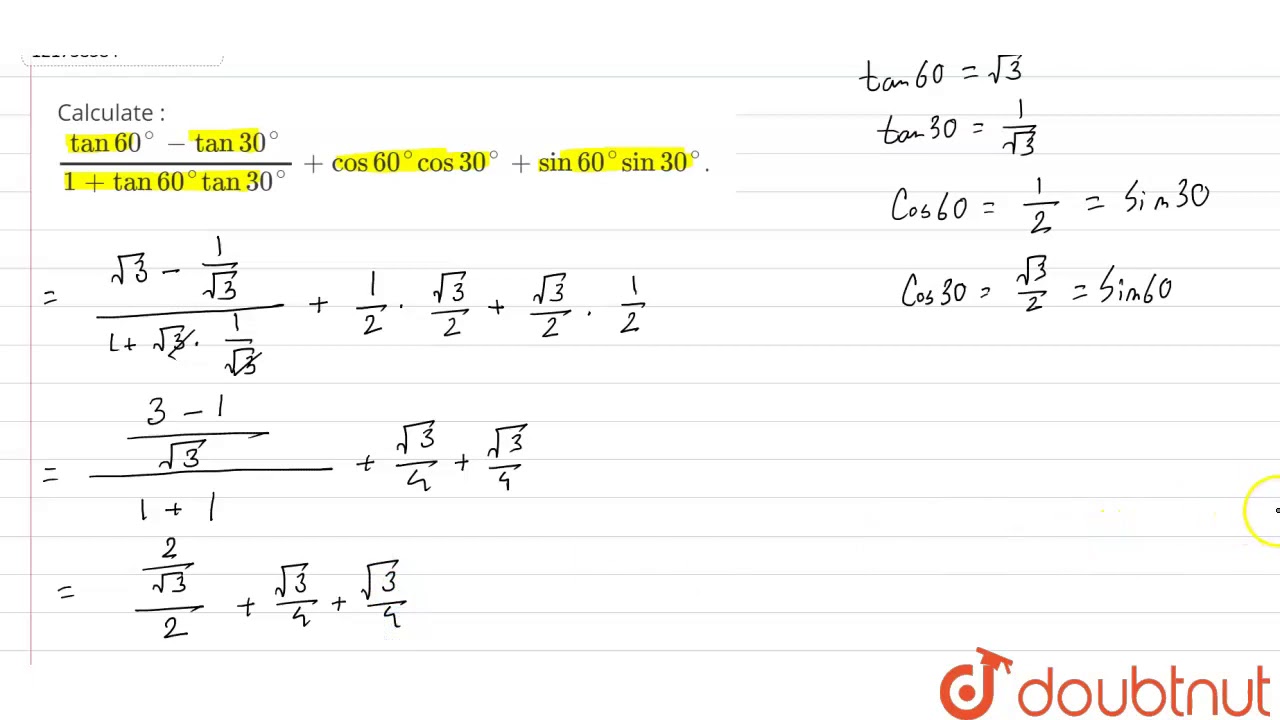 Calculate :
tan 60° − tan 30° / 1 + tan 60° tan 30° + cos 60° cos 30° + sin 60° sin 30°.
= √3 − 1/√3 / 1 + √3 · 1/√3 + 1/2 · √3/2 + √3/2 · 1/2
= 3 − 1 / √3 / 1 + 1 + √3/4 + √3/4
= 2/√3 / 2 + √3/4 + √3/4
tan 60 = √3
tan 30 = 1/√3
Cos 60 = 1/2 = Sin 30
Cos 30 = √3/2 = Sin 60
doubtnut